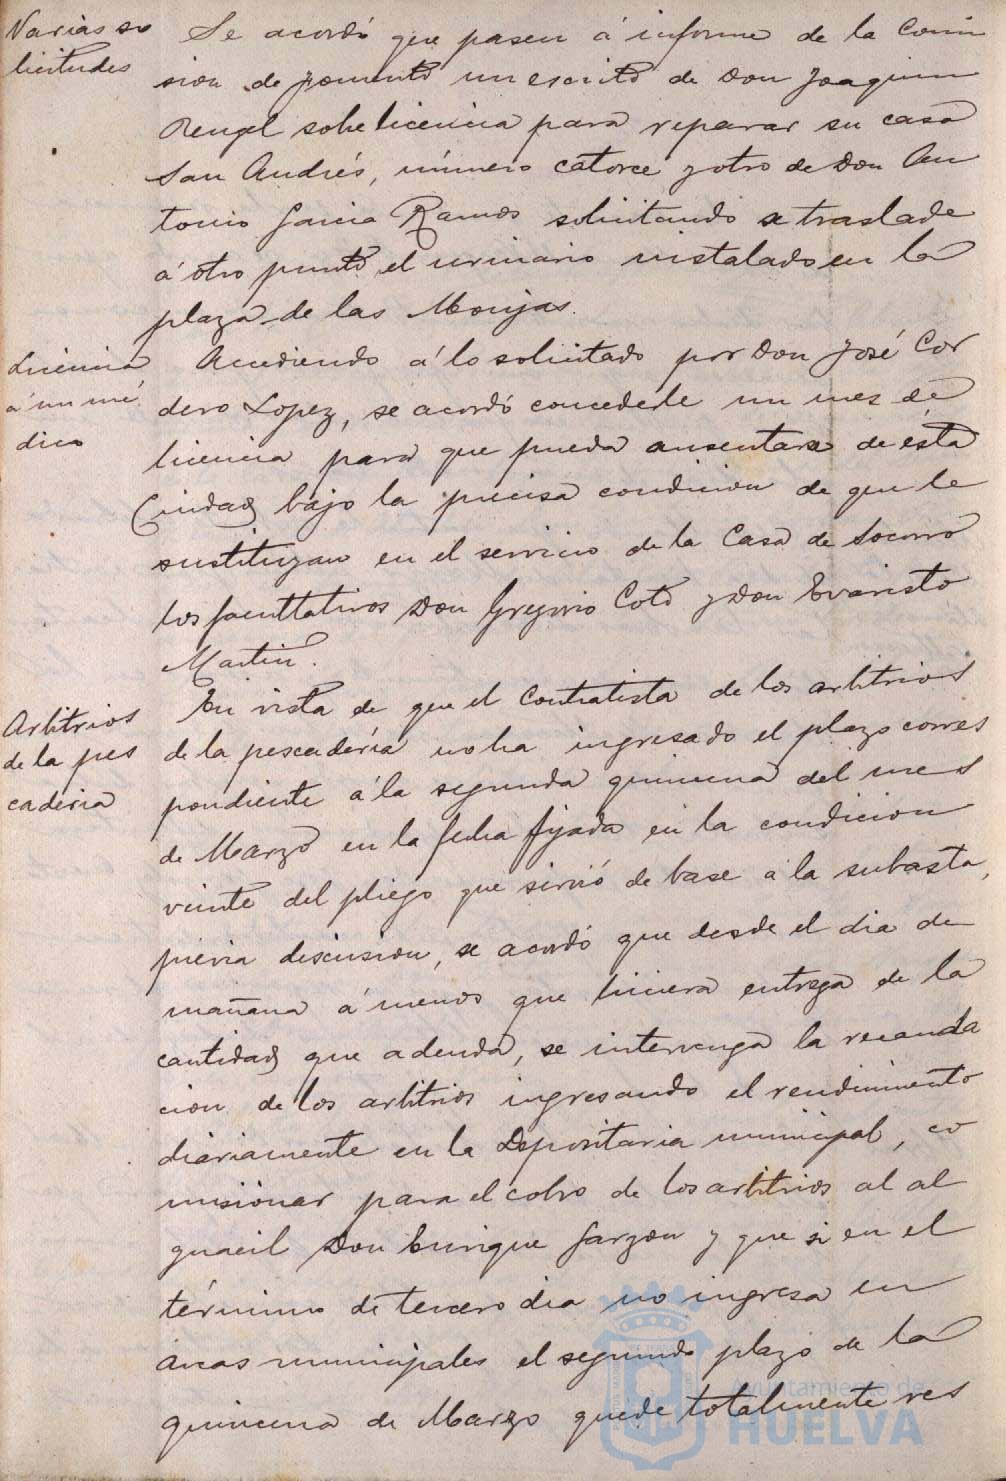 Varias so
licitudes
Se acordó que pasen á informe de la Comi
sion de fomento un escrito de Don Joaquin
Rengel sobre licencia para reparar su casa
San Andrés, número catorce y otro de Don An
tonio Garcia Ramos solicitando se traslade
á otro punto el urinario instalado en la
plaza de las Monjas.
Licencia
á un mé
dico
Accediendo á lo solicitado por Don José Cor
dero Lopez, se acordó concederle un mes de
licencia para que pueda ausentarse de ésta
Ciudad bajo la precisa condicion de que le
sustituyan en el servicio de la Casa de Socorro
los facultativos Don Gregorio Coto y Don Evaristo
Martin.
Arbitrios
de la pes
caderia
En vista de que el contratista de los arbitrios
de la pescadería no ha ingresado el plazo corres
pondiente á la segunda quincena del mes
de Marzo en la fecha fijada en la condicion
veinte del pliego que sirvió de base á la subasta,
previa discusion, se acordó que desde el dia de
mañana á menos que hiciera entrega de la
cantidad que adeuda, se intervenga la recauda
cion de los arbitrios ingresando el rendimiento
diariamente en la Depositaria municipal, co
misionar para el cobro de los arbitrios al al
guacil Don Enrique Garzon y que si en el
término de tercero dia no ingresa en
arcas municipales el segundo plazo de la
quincena de Marzo quede totalmente res
Ayuntamiento de
HUELVA